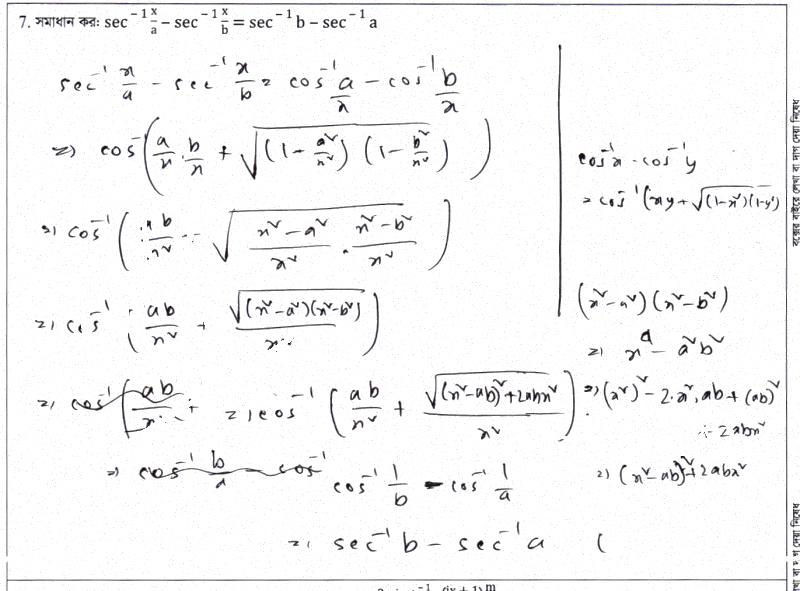 7. সমাধান কর: sec⁻¹ x/a − sec⁻¹ x/b = sec⁻¹ b − sec⁻¹ a
sec⁻¹ x/a − sec⁻¹ x/b = cos⁻¹ a/x − cos⁻¹ b/x
⇒ cos⁻¹(a/x · b/x + √((1 − a²/x²)(1 − b²/x²)))
⇒ cos⁻¹(ab/x² √((x² − a²)/x² · (x² − b²)/x²))
⇒ cos⁻¹(ab/x² + √((x² − a²)(x² − b²))/x²)
⇒ cos⁻¹(ab/x² + ⇒ cos⁻¹(ab/x² + √((x² − ab)² + 2abx²)/x²)
⇒ cos⁻¹ b/a − cos⁻¹ cos⁻¹ 1/b − cos⁻¹ 1/a
⇒ sec⁻¹ b − sec⁻¹ a (
cos⁻¹x − cos⁻¹y
= cos⁻¹(xy + √((1 − x²)(1 − y²))
(x² − a²)(x² − b²)
⇒ x⁴ − a²b²
⇒ (x²)² − 2·x²·ab + (ab)²
2abx²
⇒ (x² − ab)² + 2abx²
বক্সের বাইরে লেখা বা দাগ দেয়া নিষেধ